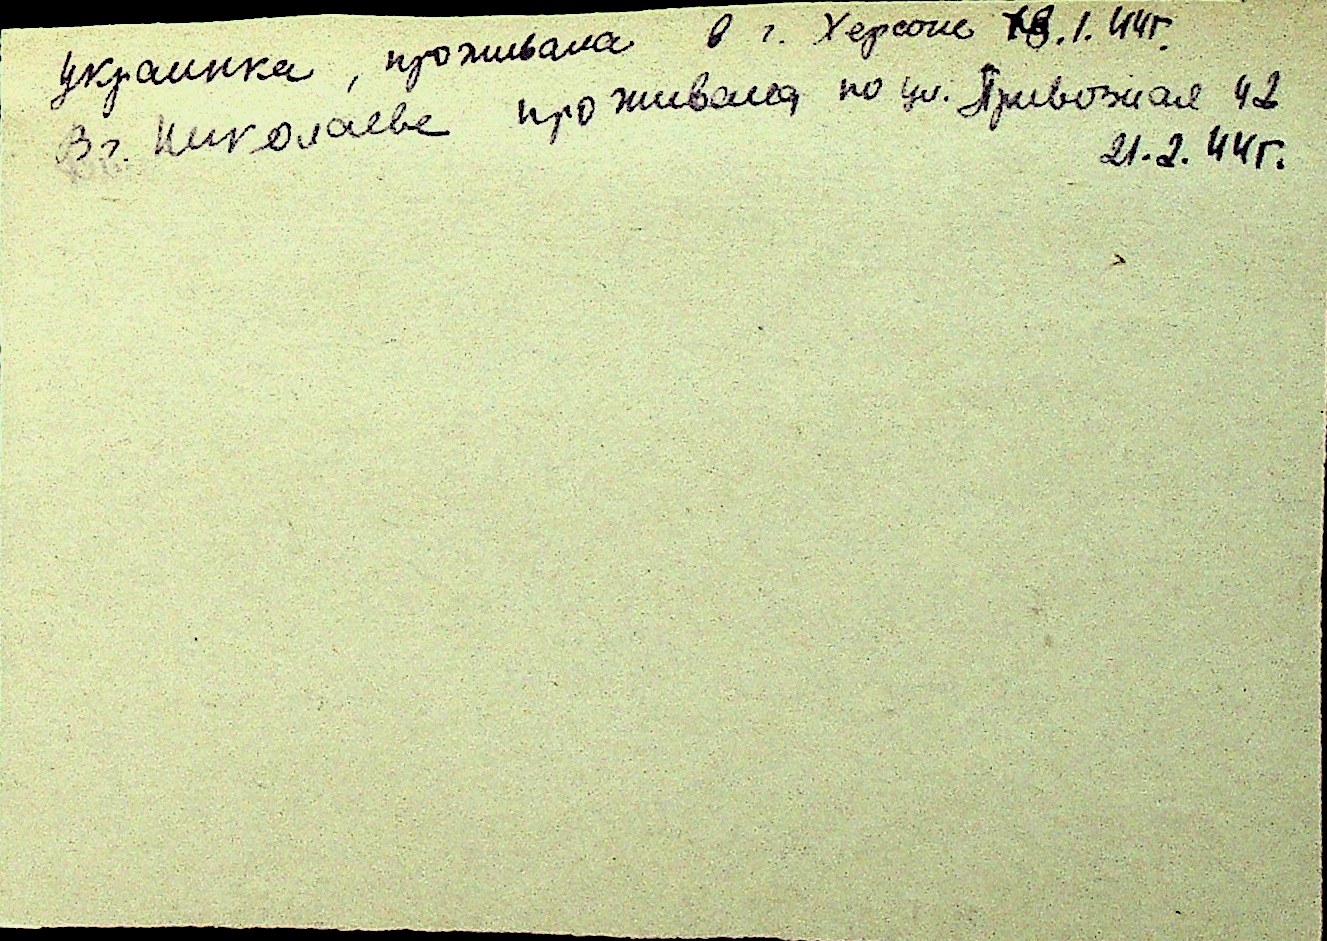 украинка, проживала в г. Херсоне 18.1.44г.
В г. Николаеве проживала по ул. Привозная 42
21.2.44г.